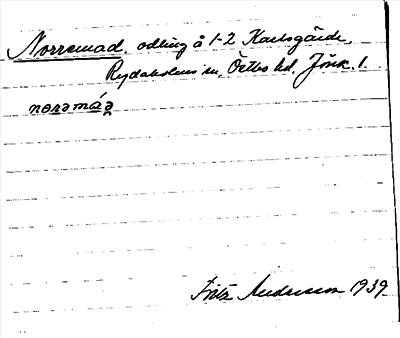 Norremad. odling å 1-2 Karlsgärde,
Rydaholms sn, Östbo hd. Jönk. l.
norəmáə̯
Fritz Andersson 1939